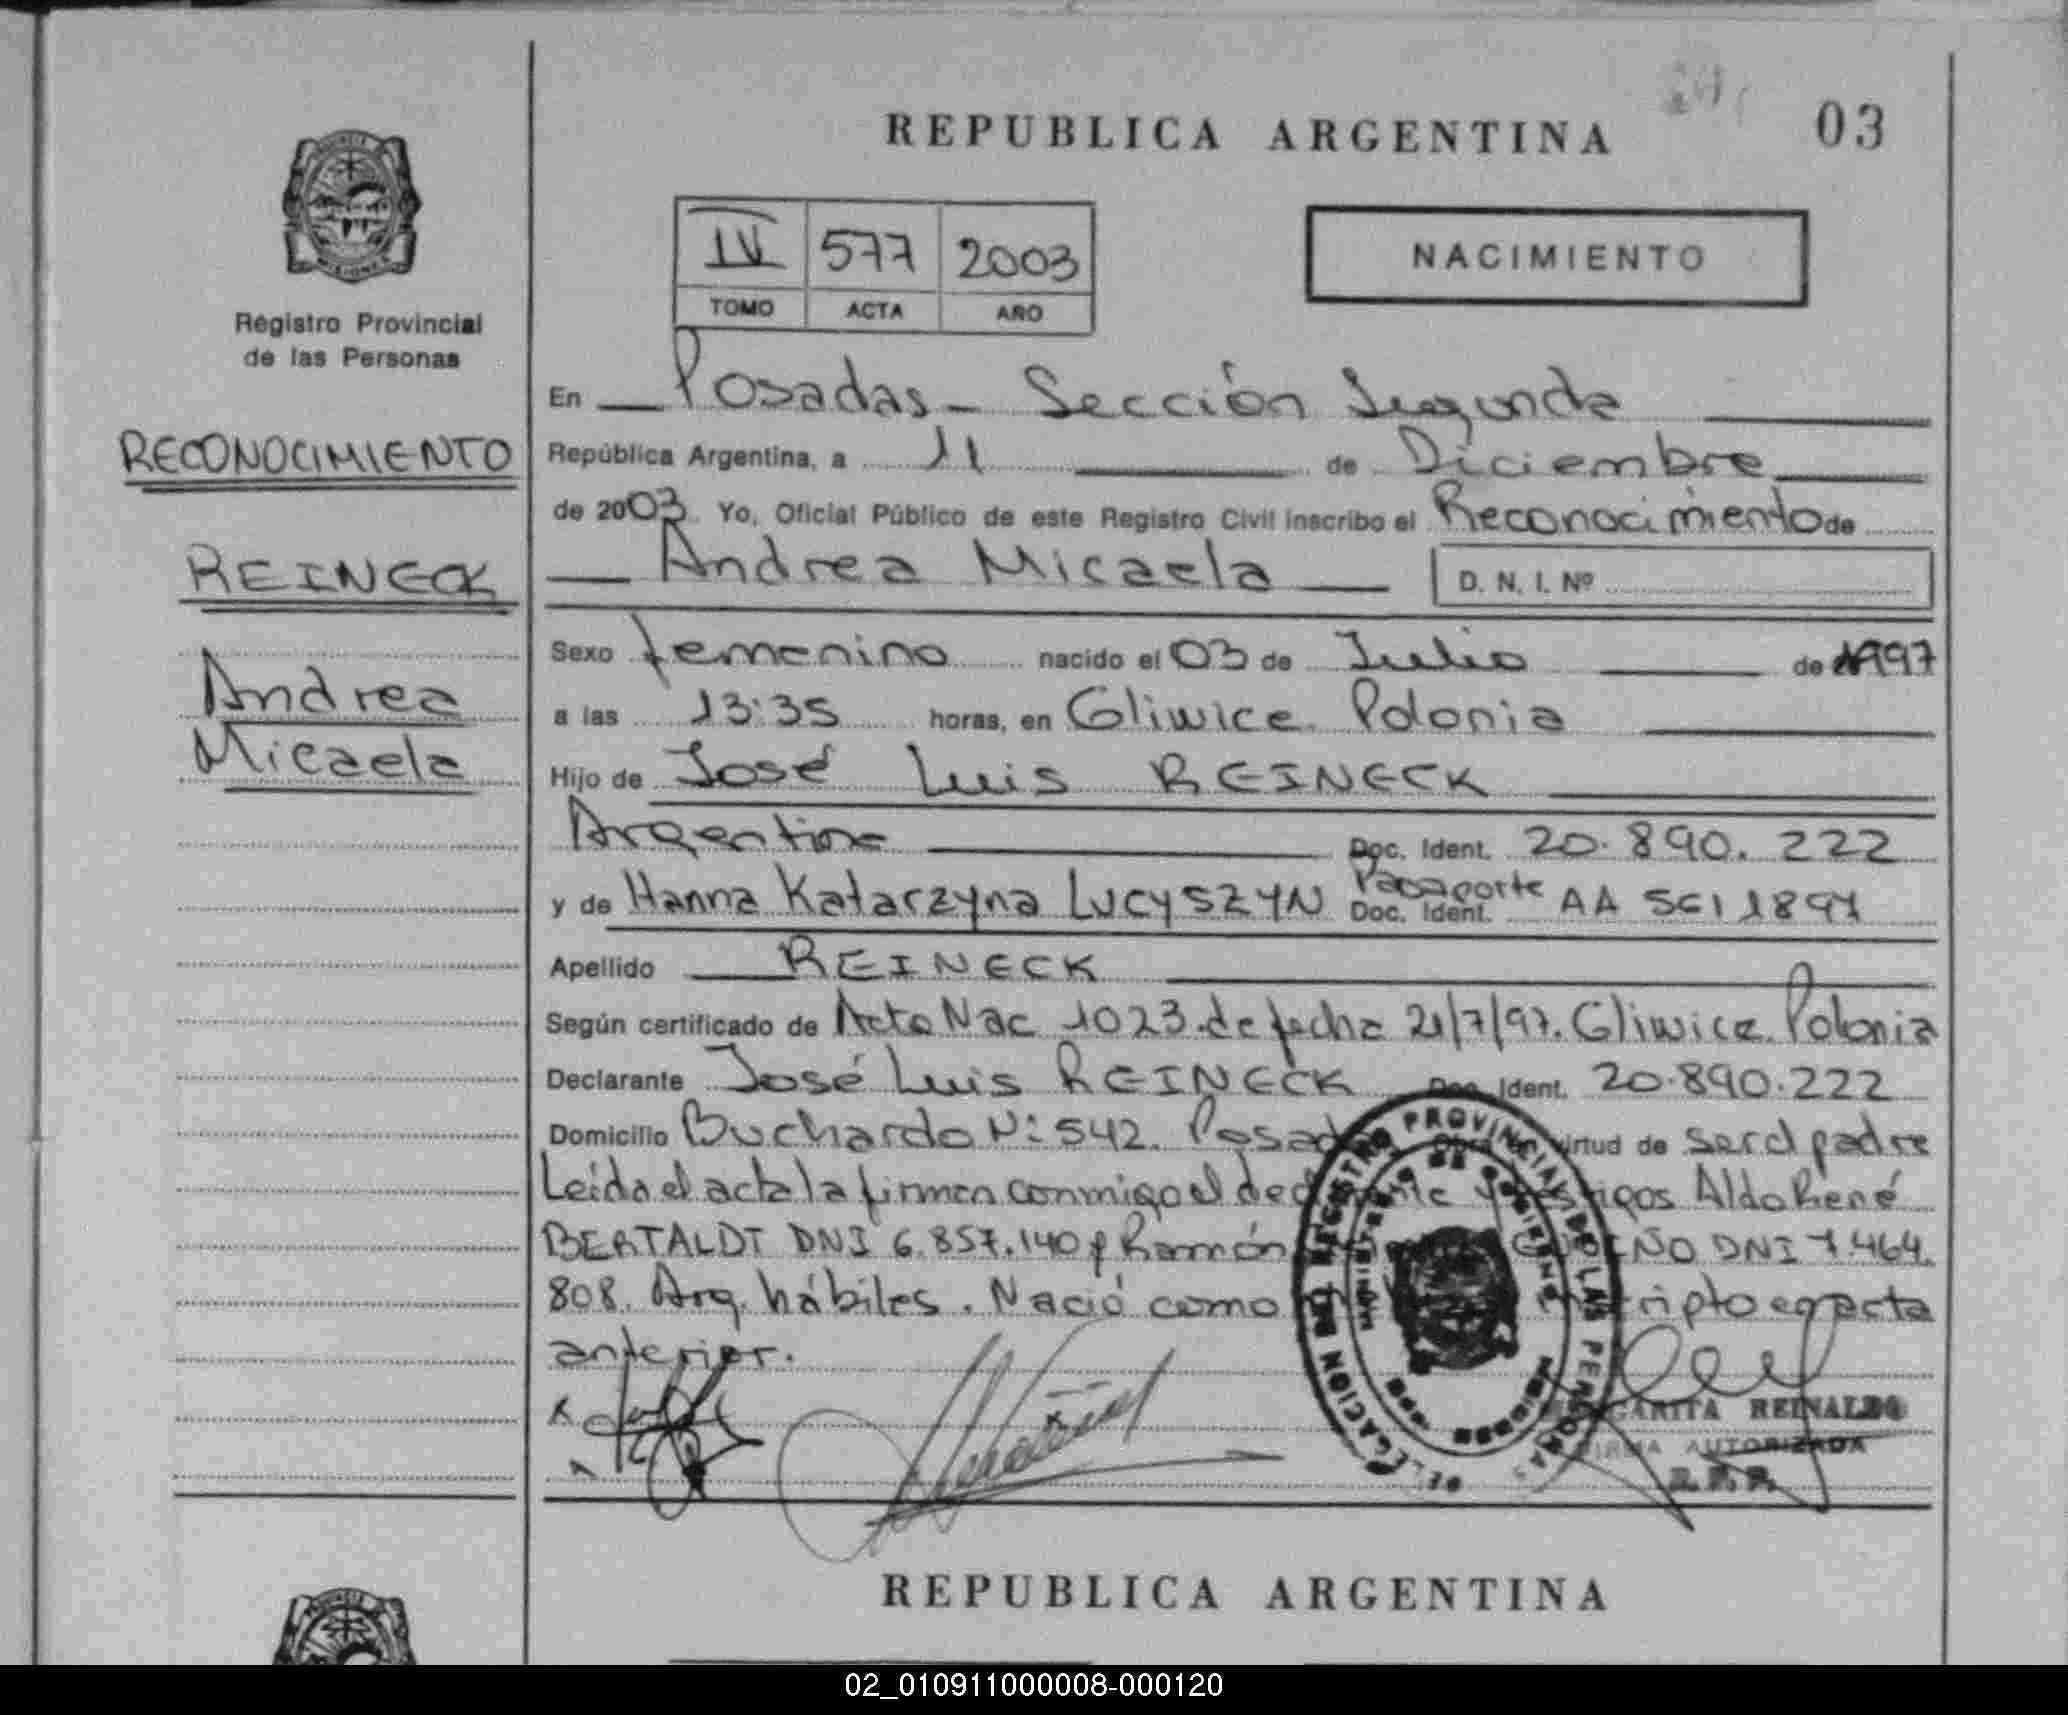 REPUBLICA ARGENTINA
03
IV 577 2003
TOMO ACTA AÑO
NACIMIENTO
Registro Provincial
de las Personas
RECONOCIMIENTO
REINECK
Andrea
Micaela
En Posadas - Sección Segunda
República Argentina, a 11 de Diciembre
de 2003 Yo, Oficial Público de este Registro Civil inscribo el Reconocimiento de
Andrea Micaela D. N. I. Nº
Sexo femenino nacido el 03 de Julio de 1997
a las 13:35 horas, en Gliwice. Polonia
Hijo de José Luis REINECK
Argentino Doc. Ident. 20.890.222
y de Hanna Katarzyna LUCYSZYN Pasaporte Doc. Ident. AA
Apellido REINECK
Según certificado de Acta Nac 1023 de fecha 21/7/97. Gliwice. Polonia
Declarante José Luis REINECK Doc. Ident. 20.890.222
Domicilio Buchardo Nº 542. Posadas virtud de ser el padre
Leida el acta la firman conmigo el Aldo René
BERTALDT DNI 6.857.140 y Ramón DNI 7.464.
808. Arg. hábiles. Nació como acta
anterior.
DELEGACION DEL REGISTRO PROVINCIAL DE LAS PERSONAS
MARGARITA REINALDO
FIRMA AUTORIZADA
REPUBLICA ARGENTINA
02_010911000008-000120